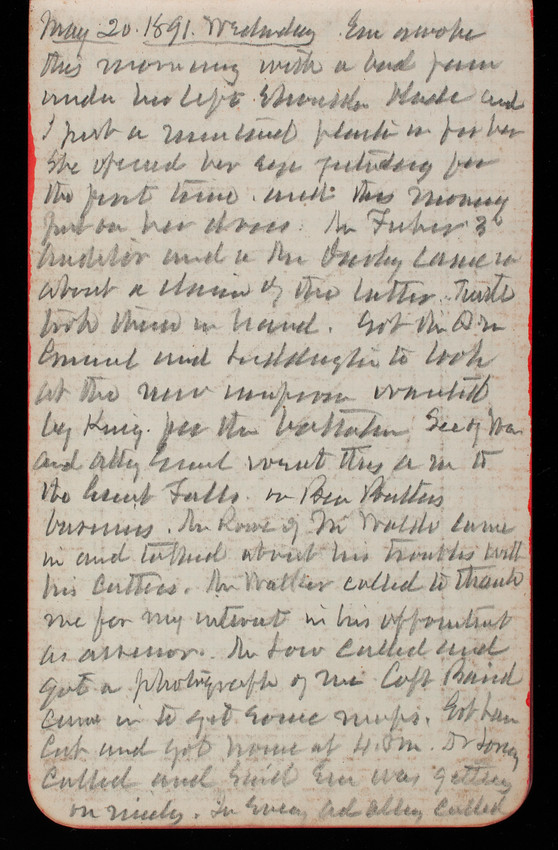 May 20. 1891. Wednesday Em awoke
this morning with a bad pain
under her left shoulder blade and
I put a mustard plaster on for her
She opened her eye yesterday for
the first time and this morning
put on her dress. Mr Fisher 3d
Auditor and a Mr Dudley came in
about a claim of the latter.
took them in hand. Got the Adj
Genl and Luddington to look
at the new uniform wanted
by King for the battalion Secy War
and Atty Genl went this a m to
the Great Falls on Ben Butlers
business. Mr Rowe of Mt Waldo came
in and talked about his troubles with
his cutters. Mr Walker called to thank
me for my interest in his appointment
as assessor. Mr Low called and
got a photograph of me Capt Baird
came in to get some maps. Got hair
cut and got home at 4.
called and said Em was getting
on nicely. In Eveng called